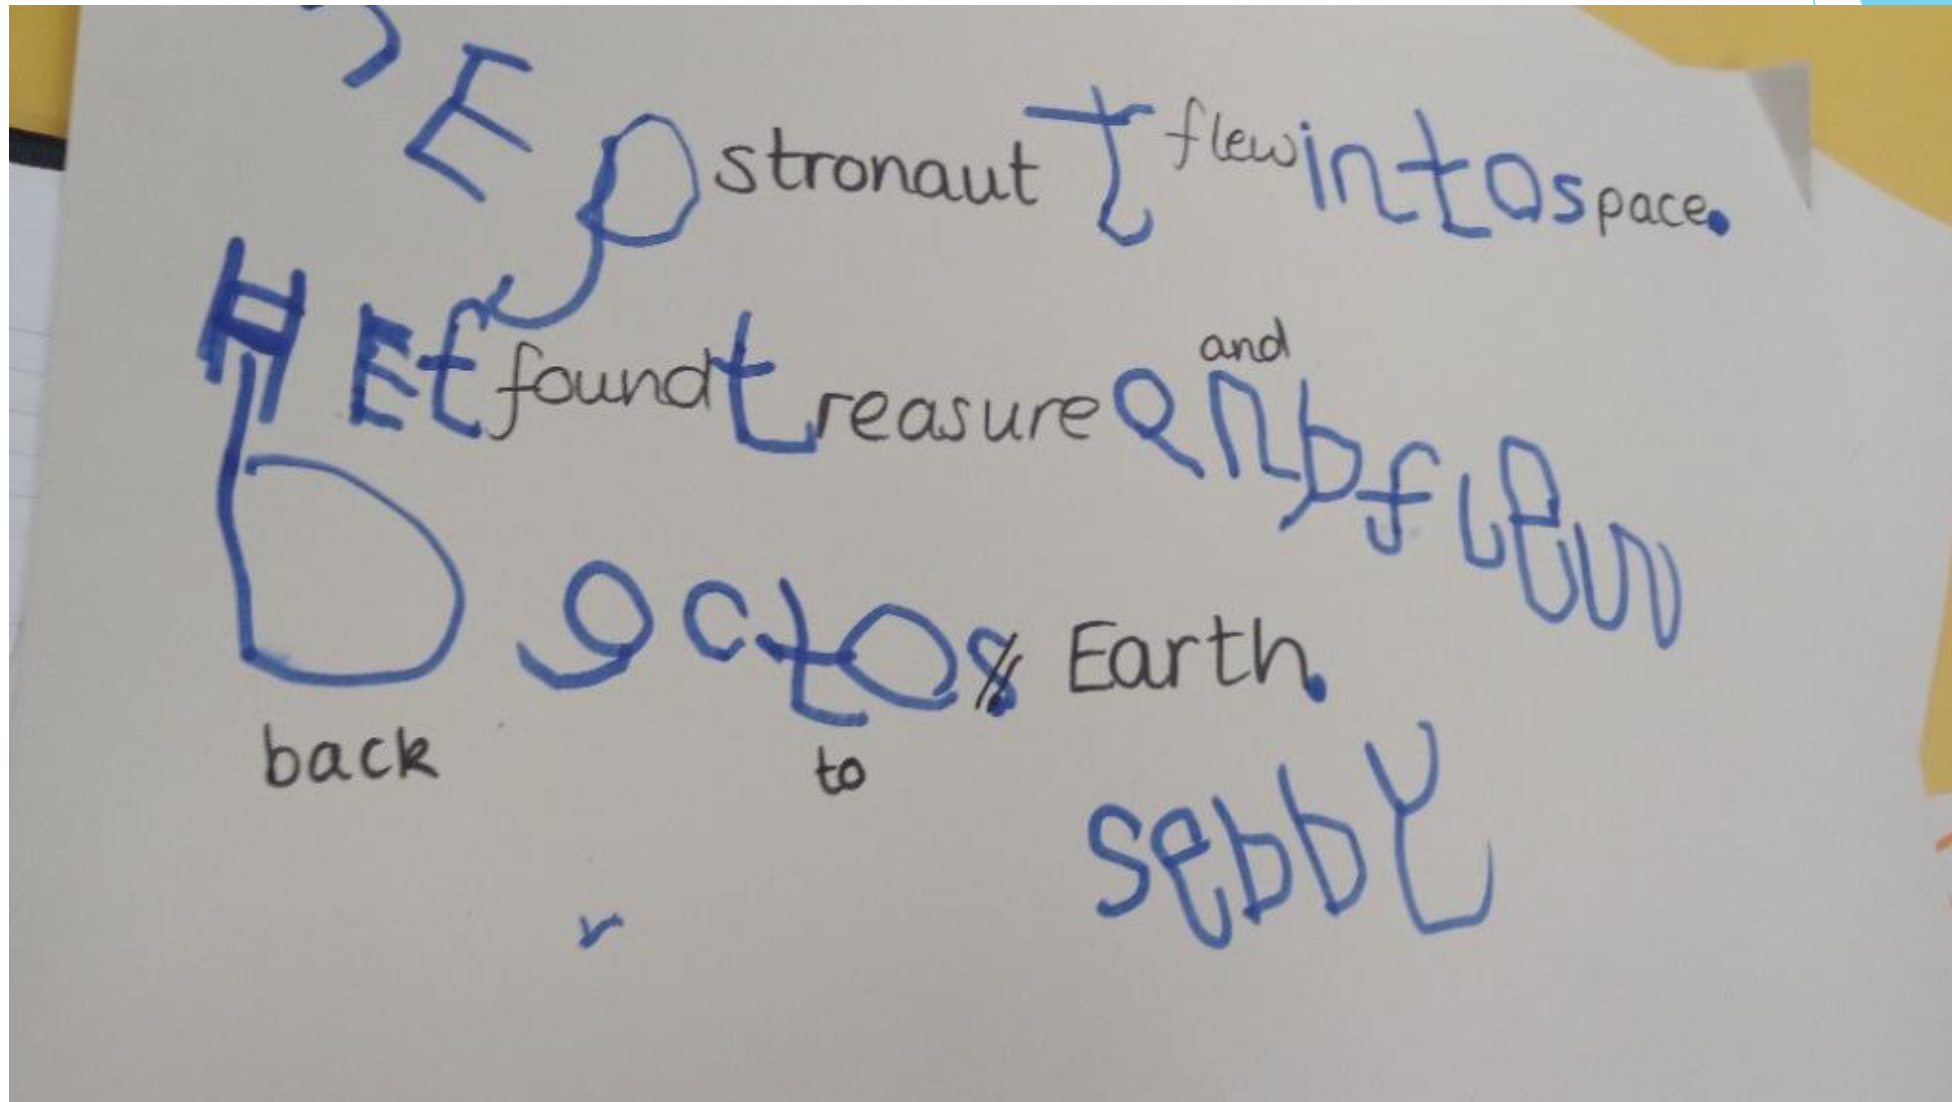 E astronaut T flew intospace.
HE f found treasure and
anb flew
bactos Earth.
back to
sebby